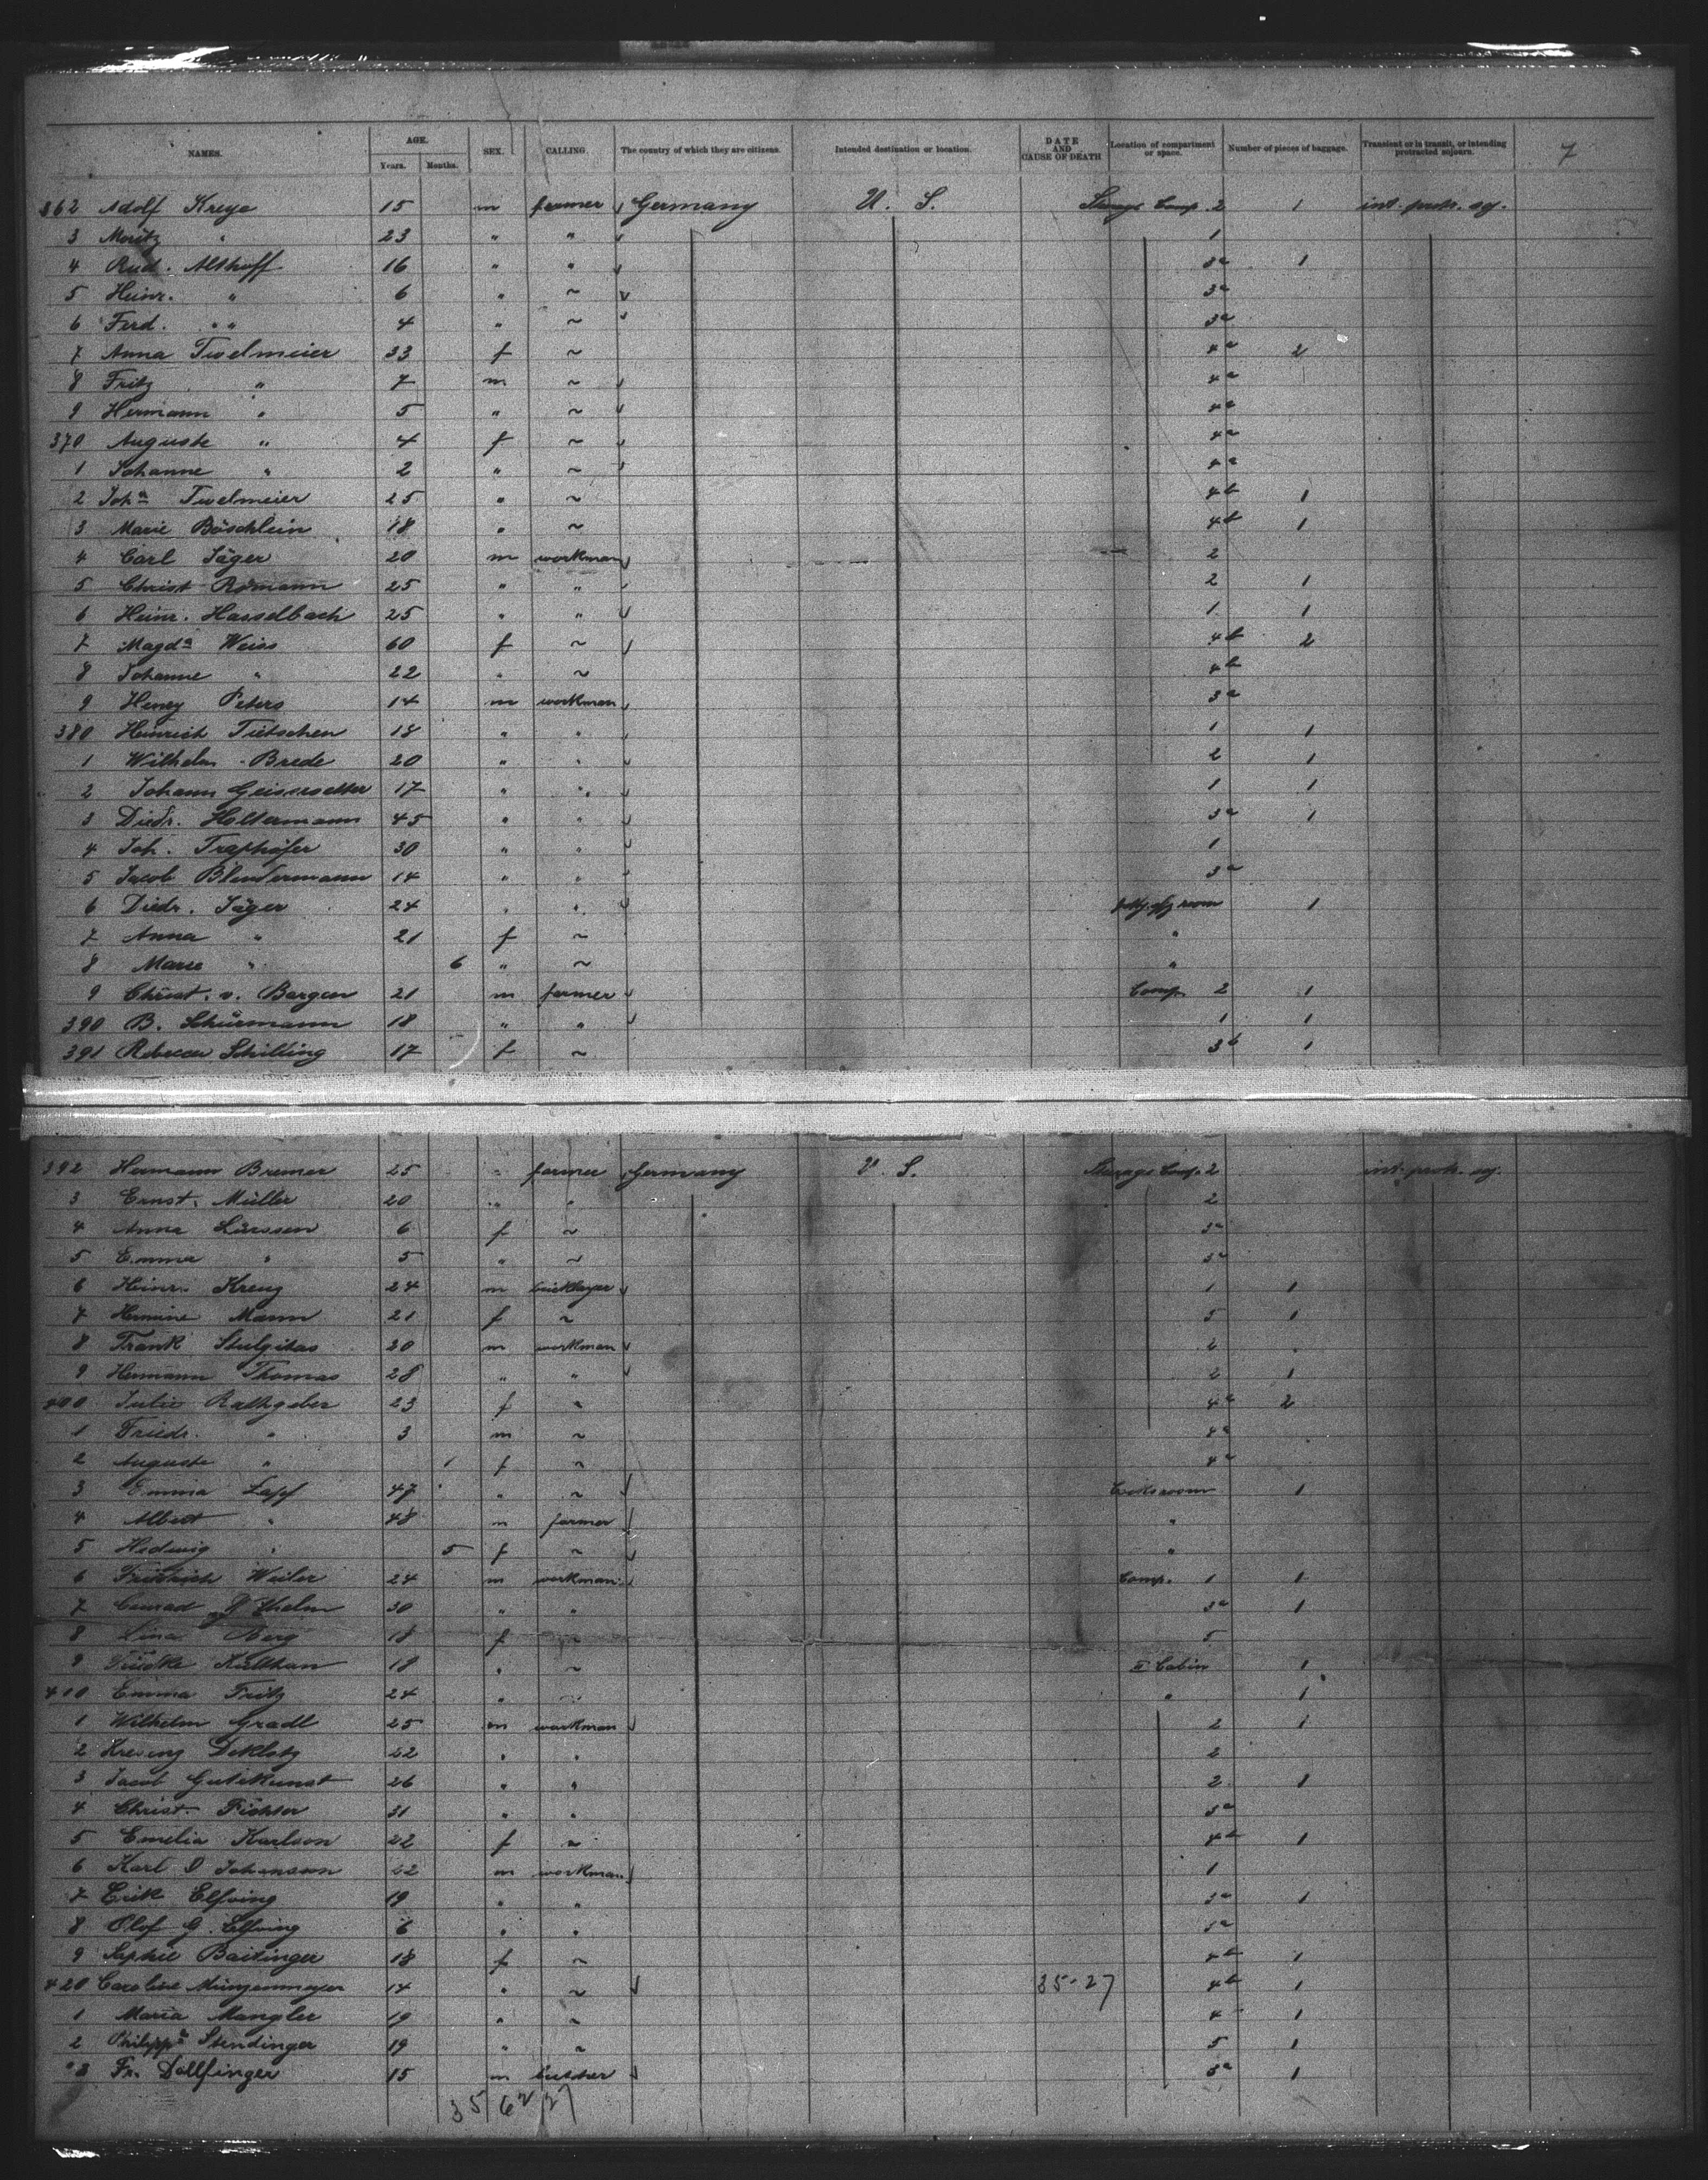 7
NAMES. AGE. Years. Months. SEX. CALLING. The country of which they are citizens. Intended destination or location. DATE AND CAUSE OF DEATH Location of compartment or space. Number of pieces of baggage. Transient or in transit, or intending protracted sojourn.
362 Adolf Kreye 15 m farmer Germany U. S. Steerage Comp. 2 1 int. protr. soj.
3 Moritz " 23 " " 1
4 Rud. Althoff 16 " " 3a 1
5 Heinr. " 6 " ~ 3a
6 Ferd. " " 4 " ~ 3a
7 Anna Twelmeier 33 f ~ 4a 2
8 Fritz " 7 m ~ 4a
9 Hermann " 5 " ~ 4a
370 Auguste " 4 f ~ 4a
1 Johanne " 2 " ~ 4a
2 Joha Twelmeier 25 " ~ 4b 1
3 Marie Böschlein 18 " ~ 4b 1
4 Carl Jäger 20 m workman 2
5 Christ Romann 25 " " 2 1
6 Heinr. Hasselbach 25 " " 1 1
7 Magda Weiss 60 f ~ 4b 2
8 Johanne " 22 " ~ 4b
9 Henry Peters 14 m workman 3a
380 Heinrich Tietschen 18 " " 1 1
1 Wilhelm Brede 20 " " 2 1
2 Johann 17 " " 1 1
3 Diedr. Holtermann 45 " " 3a 1
4 Joh. Traphöfer 30 " " 1
5 Jacob Blendermann 14 " " 3a
6 Diedr. Jäger 24 " " room 1
7 Anna " 21 f ~ "
8 Marie " 6 " ~ "
9 Christ. v. Bargen 21 m farmer Comp. 2 1
390 B. Schürmann 18 " " 1 1
391 Rebecca Schilling 17 f ~ 3b 1
392 Hermann Bremer 25 " farmer Germany U. S. Steerage Comp. 2 int. protr. soj.
3 Ernst Müller 20 " " 2
4 Anna Lürssen 6 f ~ 3a
5 Emma " 5 " ~ 3a
6 Heinr. Kreng 24 m bricklayer 1 1
7 Hermine Mann 21 f ~ 5 1
8 Frank Stulgitas 20 m workman 2
9 Hermann Thomas 28 " " 2 1
400 Julie Rathgeber 23 f ~ 4a 2
1 Friedr. " 3 m ~ 4a
2 Auguste " 1 f ~ 4a
3 Emma Lapf 47 " ~ room 1
4 Albert " 48 m farmer "
5 Hedwig " 5 f ~ "
6 Friedrich Weiler 24 m workman Comp. 1 1
7 Conrad 30 " " 3a 1
8 Lina Berg 18 f ~ 5
9 18 " ~ II Cabin 1
410 Emma Fritz 24 " ~ " 1
1 Wilhelm Gradl 25 m workman 2 1
2 22 " " 2
3 Jacob Gutekunst 26 " " 2 1
4 Christ. Fichter 31 " " 3a
5 Emelia Karlson 22 f ~ 4b 1
6 Karl Johanson 22 m workman 1
7 Erik Elfving 19 " " 3a 1
8 Olof G. Elfving 6 " " 3a
9 Sophie Baitinger 18 f ~ 4b 1
420 Caroline Münzenmayer 14 " ~ 35-27 4b 1
1 Maria Mangler 19 " ~ 4 1
2 Philippa Stendinger 19 " ~ 5 1
3 Fr. Dollfinger 15 m butcher 3a 1
35 62 27